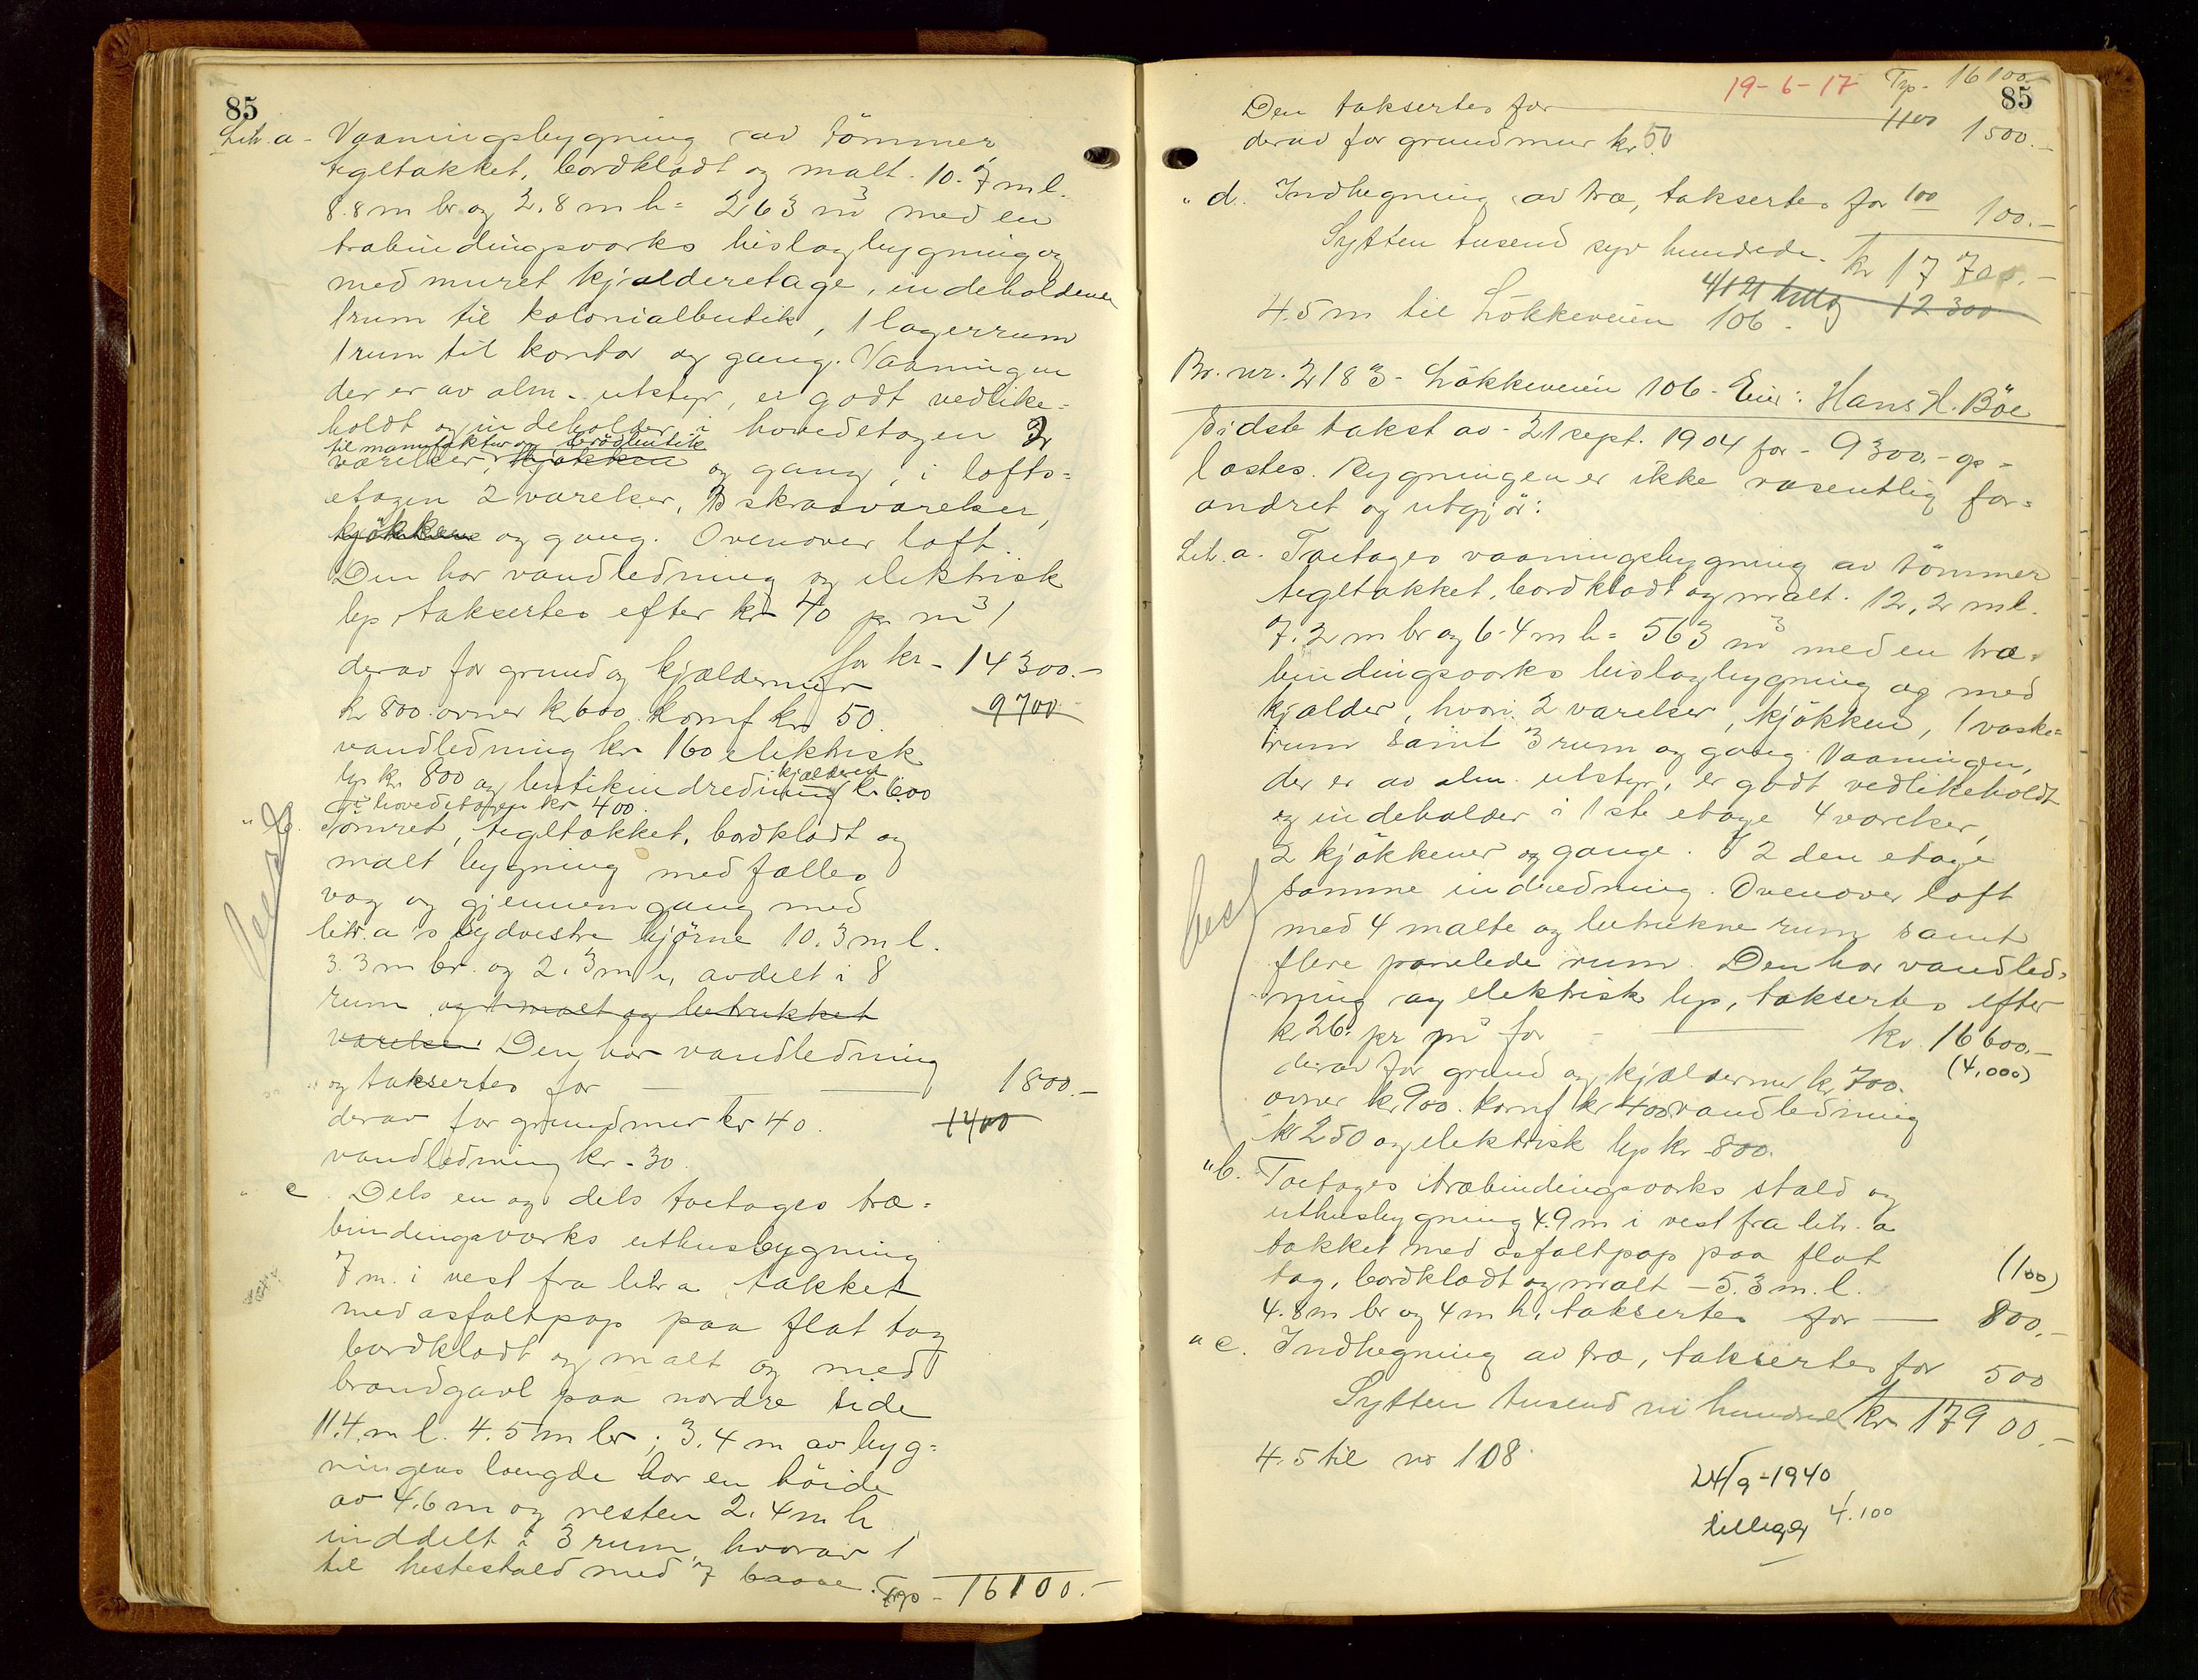 85
Litr. a - Vaaningsbygning av tömmer
tegltækket, bordklædt og malt. 10.7 m l.
8.8 m br og 2.8 m h = 263 m³ med en
træbindingsværks bislagbygning og
med muret kjælderetage, indeholdende
1 rum til kolonialbutik, 1 lagerrum
1 rum til kontor og gang. Vaaningen
der er av alm. utstyr, er godt vedlike=
holdt og indeholder i hovedetagen 2
til manufaktur og brödbutik
værelser, kjøkken og gang, i lofts=
etagen 2 værelser, 3 skraaværelser,
kjökken og gang. Ovenover loft.
Den har vandledning og elektrisk
lys, taksertes efter kr 40 pr m³
for kr - 14300.-
derav for grund og kjældermur
9700
kr 800. ovner kr 600. komf kr 50.
vandledning kr 160 elektrisk
lys kr 800 og butikindredning kjælderen kr 600
i hovedetagen kr 400.
" b. Tömret, tegltækket, bordklædt og
malt bygning med fælles
væg og gjennemgang med
litr. a's sydvestre hjörne 10.3 m l.
3.3 m br. og 2.3 m h, avdelt i 8
rum og 1 malt og betrukket
værelse. Den har vandledning
og taksertes for — 1800.-
derav for grundmur kr 40. 1400
vandledning kr - 30.
" c. Dels en og dels toetages træ=
bindingsværks uthusbygning
7 m. i vest fra litr a, tækket
med asfaltpap paa flat tag
bordklædt og malt og med
brandgavl paa nordre side
11.4 m l. 4.5 m br; 3.4 m av byg=
ningens længde har en höide
av 4.6 m og resten 2.4 m h
inddelt i 3 rum, hvorav 1
til hestestald med 7 baase.
Trp - 16100.-
19-6-17 Trp. 16100.-
85
Den taksertes for — 1100 1500.-
derav for grundmur kr 50
" d. Indhegning av træ, taksertes for 100 100.-
Sytten tusend syv hundrede. kr 17700.-
12300
4.5 m til Lökkeveien 106.
Br. nr. 2183 - Lökkeveien 106 - Eier: Hans H. Böe
Sidste takst av - 21 sept. 1904 for - 9300.- op-
læstes. Bygningen er ikke væsentlig for=
andret og utgjör:
Litr. a. Toetages vaaningsbygning av tömmer
tegltækket, bordklædt og malt. 12,2 m l.
7.2 m br og 6.4 m h = 563 m³ med en træ=
bindingsværks bislagbygning og med
kjælder, hvori 2 værelser, kjökken, 1 vaske=
rum samt 3 rum og gang. Vaaningen,
der er av alm. utstyr, er godt vedlikeholdt
og indeholder i 1ste etage 4 værelser,
2 kjökkener og gange. I 2den etage
samme indredning. Ovenover loft
med 4 malte og betrukne rum samt
flere panelede rum. Den har vandled=
ning og elektrisk lys, taksertes efter
kr 26. pr m³ for — kr. 16600.-
derav for grund og kjældermur kr 700. (4,000)
ovner kr 900. komf kr 400 vandledning
kr 250 og elektrisk lys kr 800.
" b. Toetages træbindingsværks stald og
uthusbygning 4.9 m i vest fra litr. a
tækket med asfaltpap paa flat
tag, bordklædt og malt - 5.3 m. l. (100)
4.8 m br og 4 m h, taksertes for — 800.-
" c. Indhegning av træ, taksertes for 500
Sytten tusend ni hundrede kr 17900.-
4.5 til no 108.
24/9-1940
tillegg 4.100